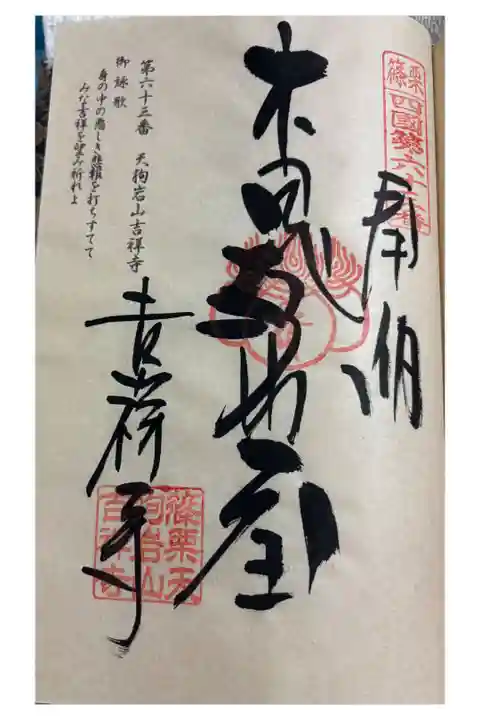 篠栗
四國第六十三番
奉納
吉祥寺
篠栗天
狗岩山
吉祥寺
第六十三番 天狗岩山吉祥寺
御詠歌
身の中の悪しき悲報を打ちすてて
みな吉祥を望み祈れよ